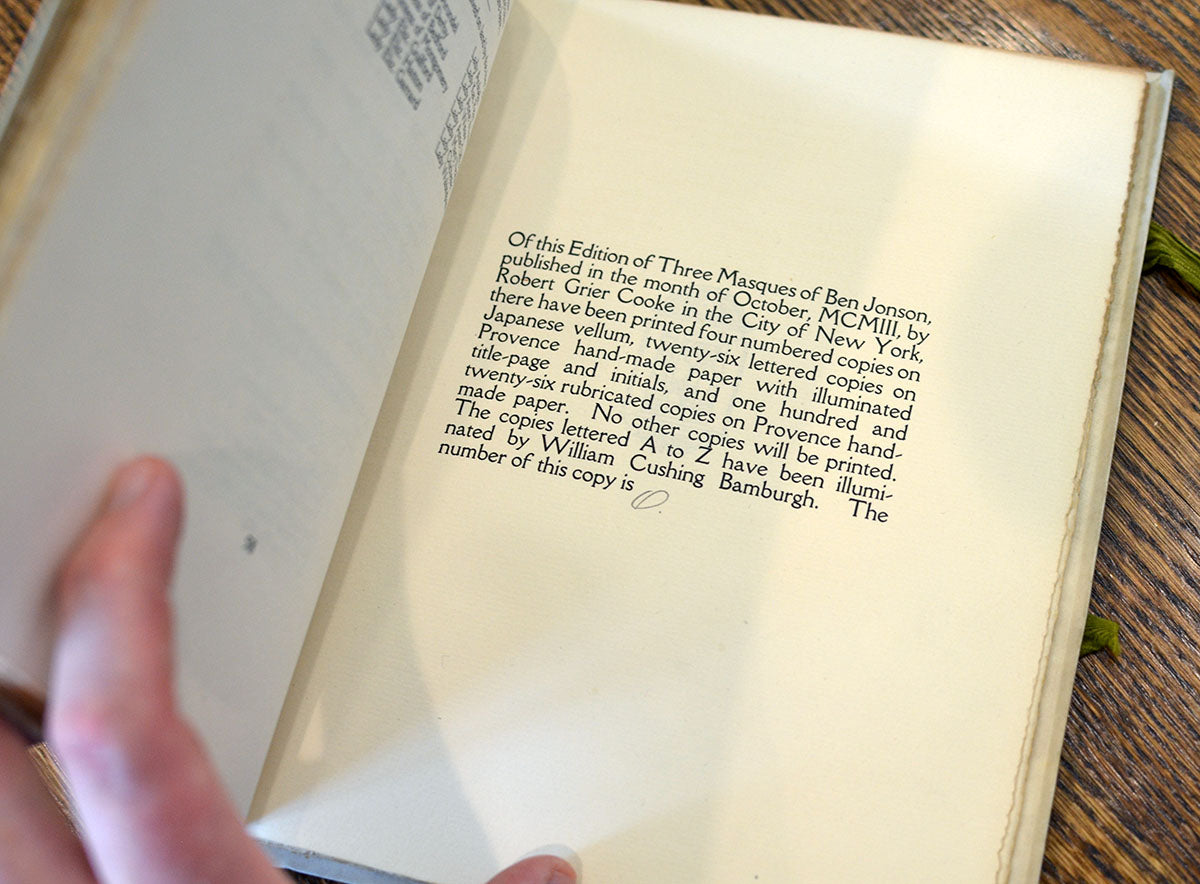 Of this Edition of Three Masques of Ben Jonson,
published in the month of October, MCMIII, by
Robert Grier Cooke in the City of New York,
there have been printed four numbered copies on
Japanese vellum, twenty-six lettered copies on
Provence hand-made paper with illuminated
title-page and initials, and one hundred and
twenty-six rubricated copies on Provence hand-
made paper. No other copies will be printed.
The copies lettered A to Z have been illumi-
nated by William Cushing Bamburgh. The
number of this copy is O.